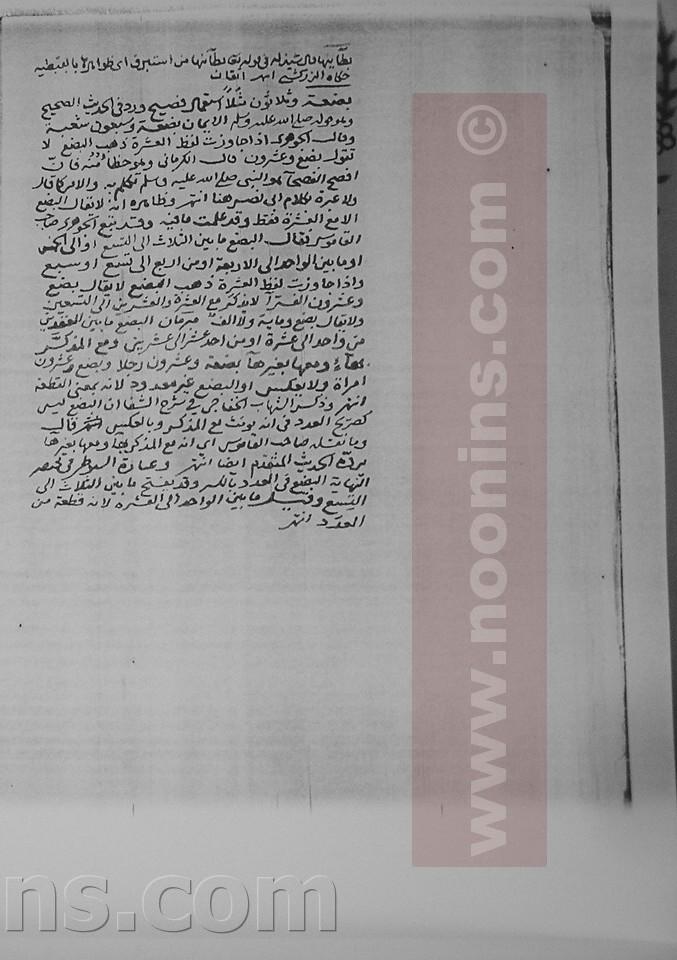 بطاينها قال شيذله في قوله تعالى بطآئنها من استبرق اي ظواهرها بالقبطيه
حكاه الزركشي انتهى اتقان
بضعة وثلاثون مثلاً استعمال فصيح ورد في الحديث الصحيح
وهو قوله صلى الله عليه وسلم الايمان بضعة وسبعون شعبة
وقال الجوهري اذا جاوزت لفظ العشرة ذهب البضع لا
تقول بضع وعشرون قال الكرماني وهو خطأ منه فان
افصح الفصحآ هو النبي صلى الله عليه وسلم تكلم به والامر كما قال
ولا عبرة بكلام الى نصر هنا انتهى وظاهره انه لا يقال البضع
الا مع العشرة فقط وقد علمت مافيه وقد تبع الجوهري صاحب
القاموس فقال البضع ما بين الثلاث الى التسع او الى الخمس
او ما بين الواحد الى الاربعة او من اربع الى تسع او سبع
واذا جاوزت لفظ العشرة ذهب البضع لا يقال بضع
وعشرون الفرآ لا يذكر مع العشرة والعشرين الى التسعين
ولا يقال بضع وماية ولا الف مبرمان البضع ما بين العقدين
من واحد الى عشرة او من احد عشر الى عشرين ومع المذكر
بهاء ومعها بغيرها بضعة وعشرون رجلا وبضع وعشرون
امراة ولا يعكس او البضع غير معدود لانه بمعنى القطعة
انتهى وذكر الشهاب الخفاجي في شرح الشفا ان البضع ليس
كصريح العدد في انه يونث مع المذكر وبالعكس انتهى قال
وما نقله صاحب القاموس اي انه مع المذكر بها ومعها بغيرها
يرده الحديث المتقدم ايضا انتهى وعبارة السيوطي في مختصر
النهاية البضع في العدد بالكسر وقد يفتح ما بين الثلاث الى
التسع وقيل ما بين الواحد الى العشرة لانه قطعة من
العدد انتهى
www.noonins.com ©
ns.com